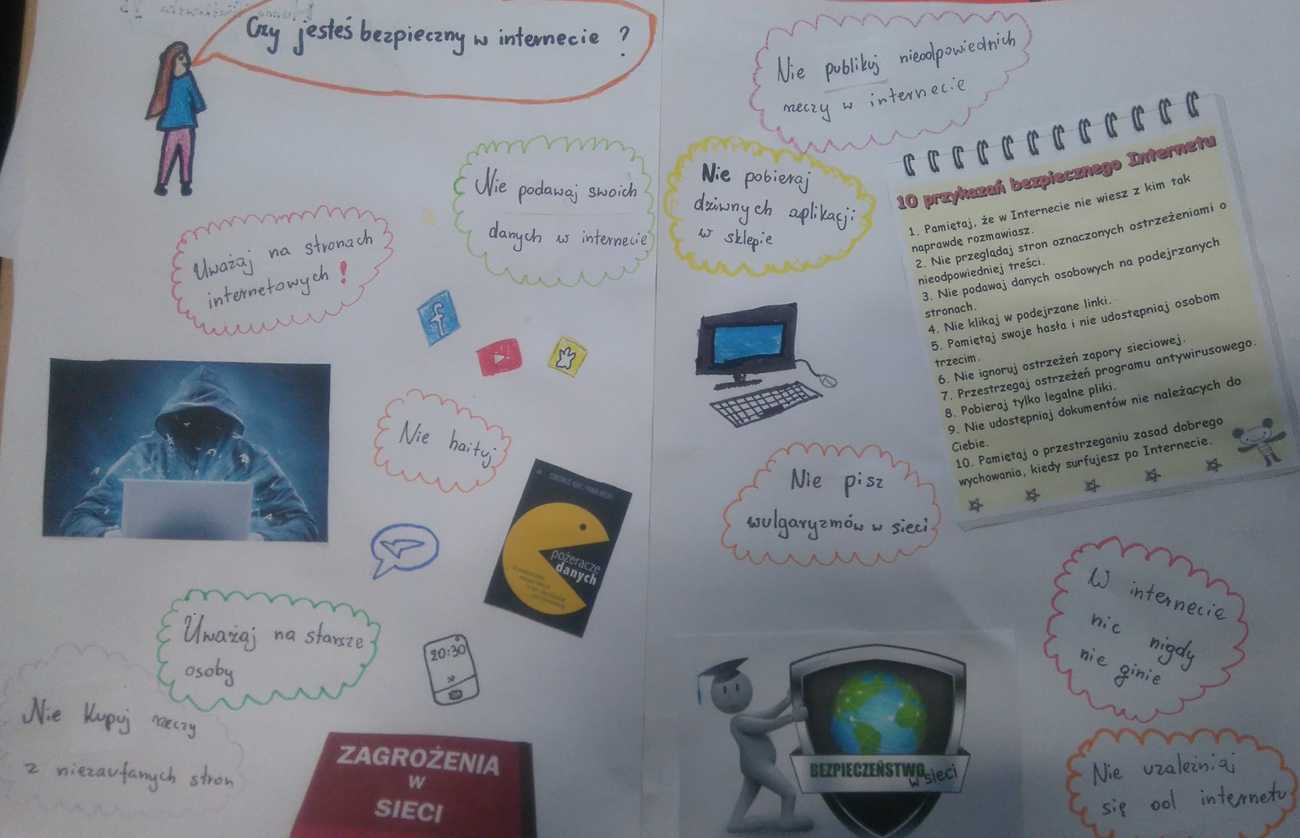 Czy jesteś bezpieczny w internecie ?
Nie publikuj nieodpowiednich
rzeczy w internecie
Nie podawaj swoich
danych w internecie
Nie pobieraj
dziwnych aplikacji
w sklepie
Uważaj na stronach
internetowych !
10 przykazań bezpiecznego Internetu
1. Pamiętaj, że w Internecie nie wiesz z kim tak
naprawdę rozmawiasz.
2. Nie przeglądaj stron oznaczonych ostrzeżeniami o
nieodpowiedniej treści.
3. Nie podawaj danych osobowych na podejrzanych
stronach.
4. Nie klikaj w podejrzane linki.
5. Pamiętaj swoje hasła i nie udostępniaj osobom
trzecim.
6. Nie ignoruj ostrzeżeń zapory sieciowej.
7. Przestrzegaj ostrzeżeń programu antywirusowego.
8. Pobieraj tylko legalne pliki.
9. Nie udostępniaj dokumentów nie należących do
Ciebie.
10. Pamiętaj o przestrzeganiu zasad dobrego
wychowania, kiedy surfujesz po Internecie.
Nie hajtuj
pożeracze
danych
Nie pisz
wulgaryzmów w sieci
W internecie
nic nigdy
nie ginie
Uważaj na starsze
osoby
20:30
Nie kupuj rzeczy
z niezaufanych stron
ZAGROŻENIA
W
SIECI
BEZPIECZEŃSTWO
w sieci
Nie uzależniaj
się od internetu